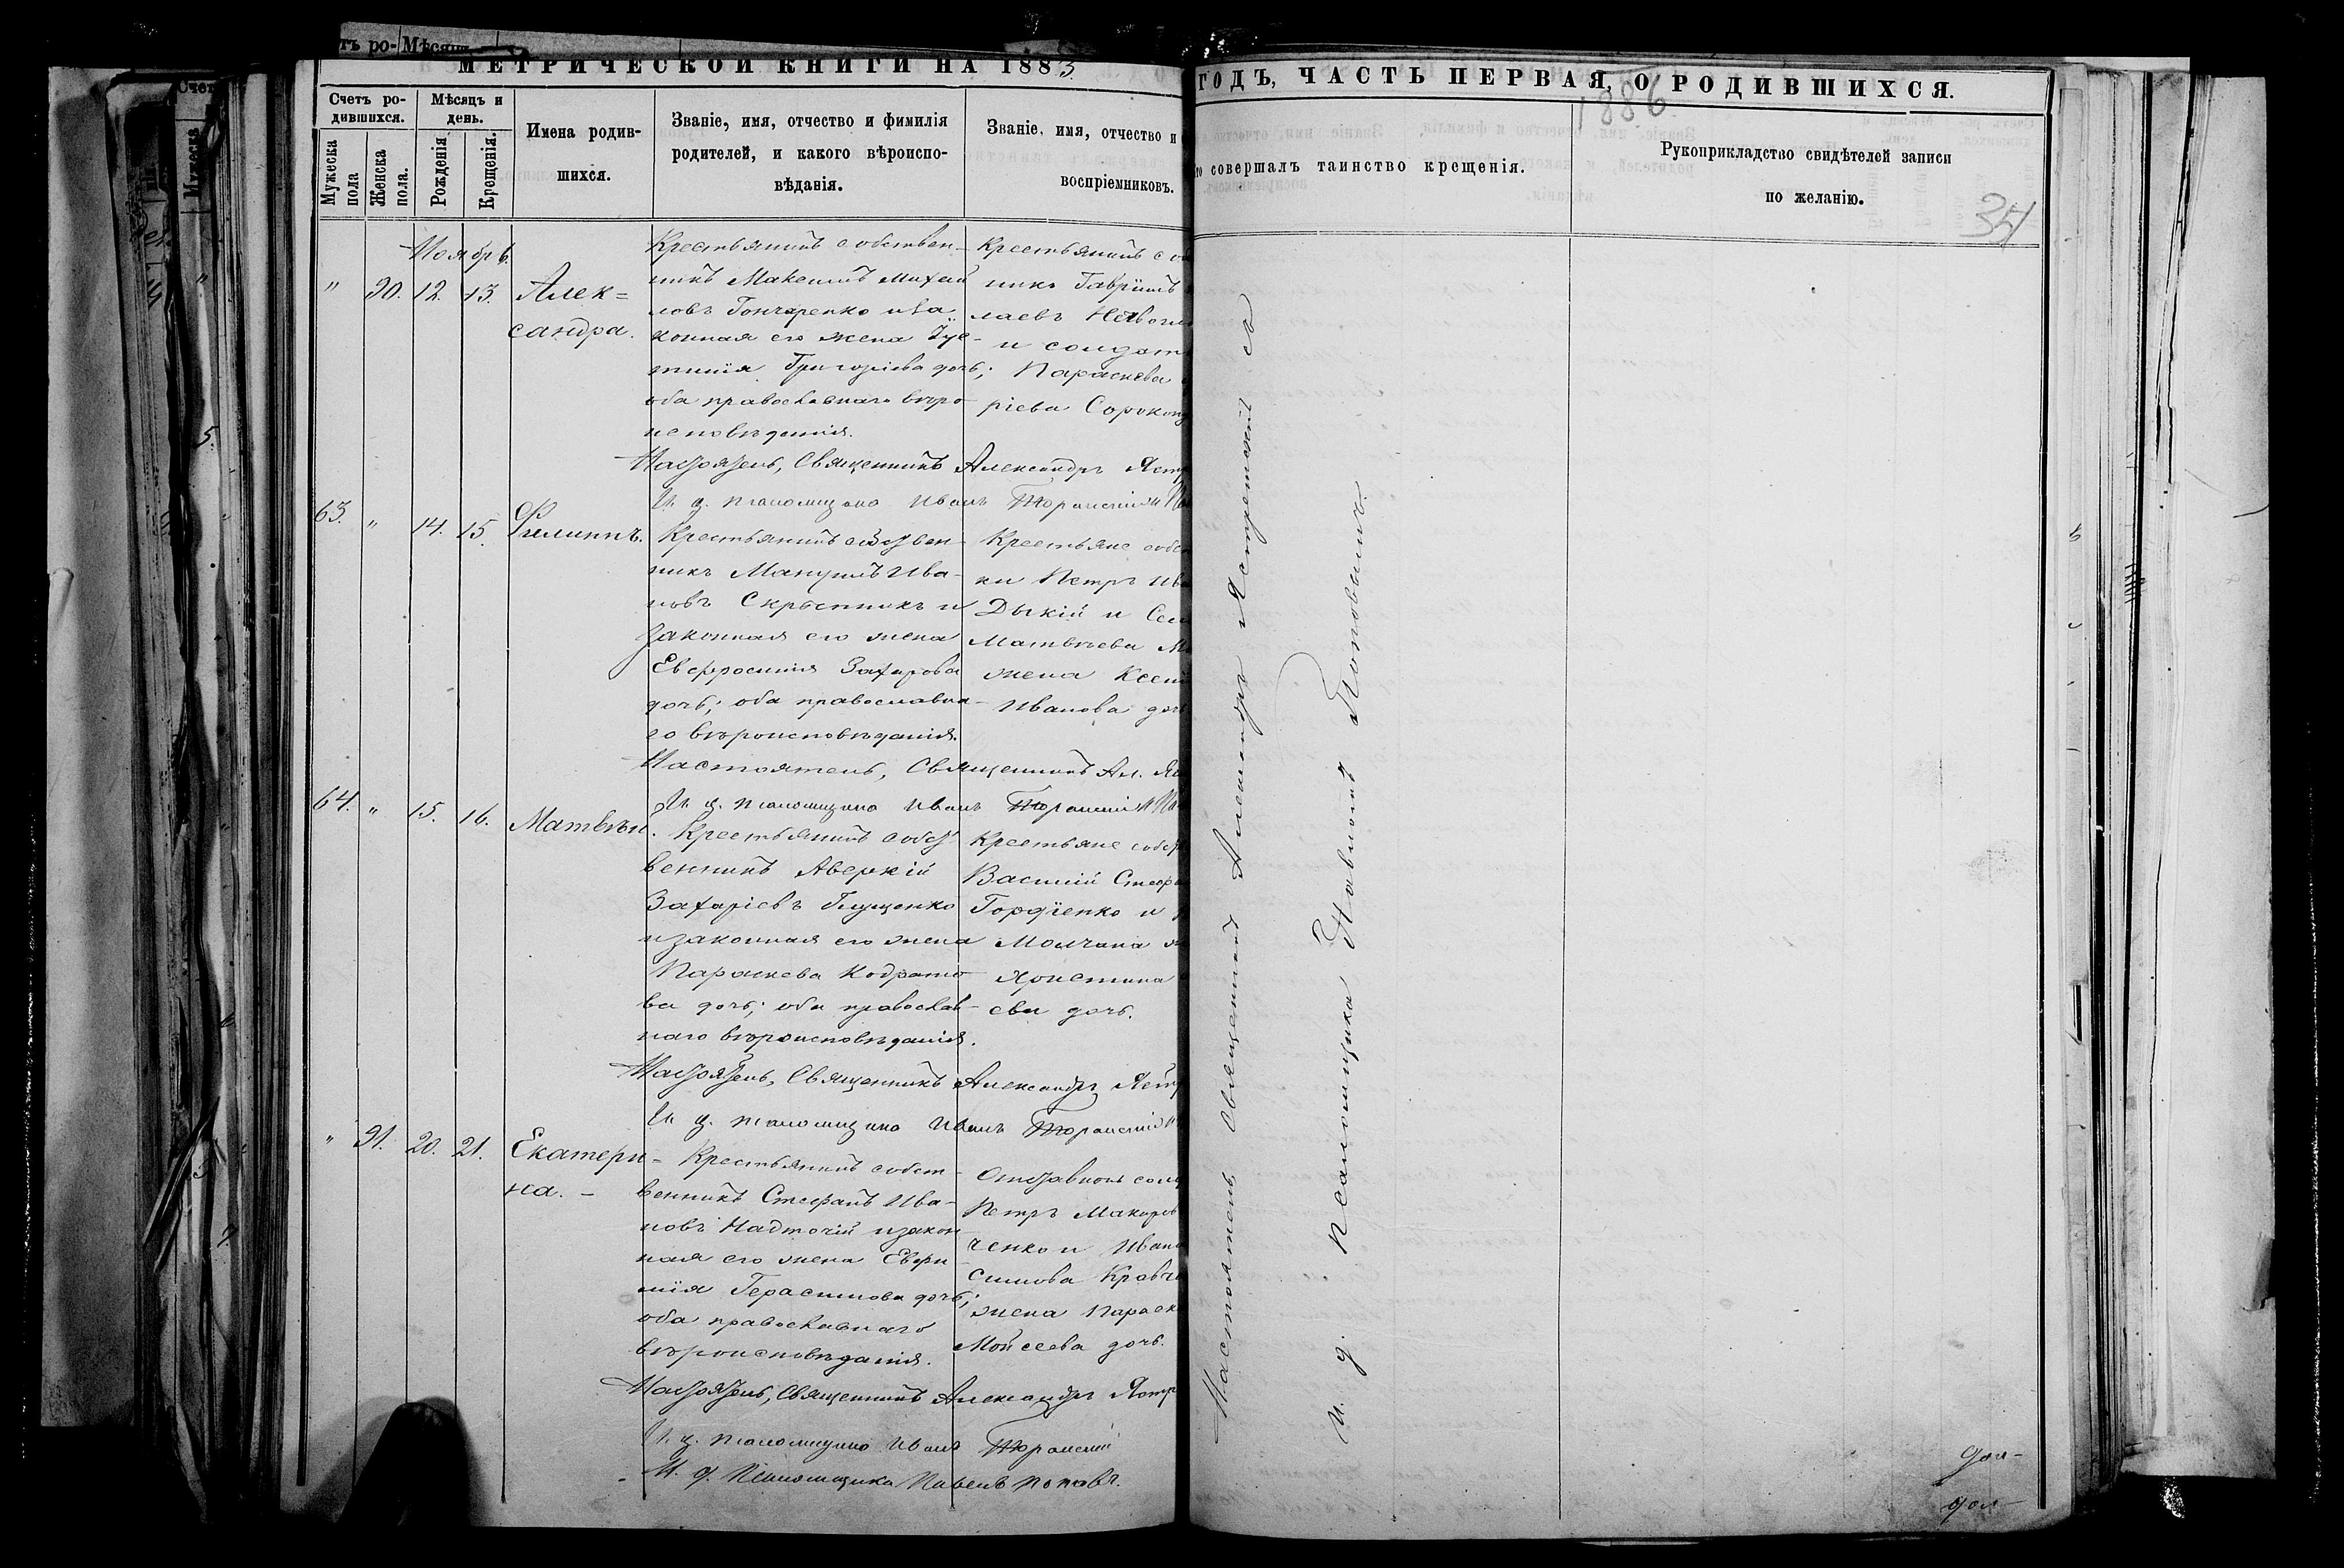 МЕТРИЧЕСКОЙ КНИГИ НА 1883
ГОДЪ, ЧАСТЬ ПЕРВАЯ, О РОДИВШИХСЯ.
1886
34
Счетъ ро-
дившихся.
Мужеска
пола
Женска
пола.
Мѣсяцъ и
день.
Рожденія
Крещенія.
Имена родив-
шихся.
Званіе, имя, отчество и фимилія
родителей, и какого вѣроиспо-
вѣданія.
Званіе, имя, отчество и
воспріемниковъ.
совершалъ таинство крещенія.
Рукоприкладство свидѣтелей записи
по желанію.
Ноябрь.
" 90. 12. 13. Алек=
сандра.
Крестьянинъ собствен-
никъ Максимъ Михай
ловъ Гончаренко и за
конная его жена Іус-
тинія Григоріева дочь;
оба православнаго вѣро
исповѣданія.
Крестьянинъ со
никъ Гавріилъ
лаевъ
и солдат
Параскева
ріева
Настоятель, Священникъ Александръ Ястр
И. д. псаломщика Иванъ
63. " 14. 15. Филиппъ.
Крестьянинъ собствен-
никъ Мануилъ Ива-
новъ Скрыпникъ и
законная его жена
Евфросинія Захарова
дочь; оба православна-
го вѣроисповѣданія.
Крестьяне собст
ки Петръ Ива
Дыкій и Сем
Матвѣева М
жена Ксені
Иванова дочь
Настоятель, Священникъ Ал. Яс
И. д. псаломщика Иванъ
64. " 15. 16. Матвѣй.
Крестьянинъ собст
венникъ Аверкій
Захаріевъ Глущенко
и законная его жена
Параскева Кодрато
ва дочь; оба православ-
наго вѣроисповѣданія.
Крестьяне собст
Василій Стеф
Гордіенко и
Молчана
Христина
ева дочь.
Настоятель, Священникъ Александръ Ястр
И. д. псаломщика Иванъ
" 91. 20. 21. Екатери-
на. –
Крестьянинъ собст-
венникъ Стефанъ Ива-
новъ Надточій и закон
ная его жена Евфи
мія Герасимова дочь;
оба православнаго
вѣроисповѣданія.
Отставной солд
Петръ Макаров
ченко и Ивана
симова Кравч
жена Параск
Мойсеева дочь.
Настоятель, Священникъ Александръ Ястр
И. д. псаломщика Иванъ
И. д. Псаломщика Павелъ Поповъ.
Настоятель, Священникъ Александръ Ястремскій
И. д. псаломщика Павелъ Поповичъ.
дол-
дол-